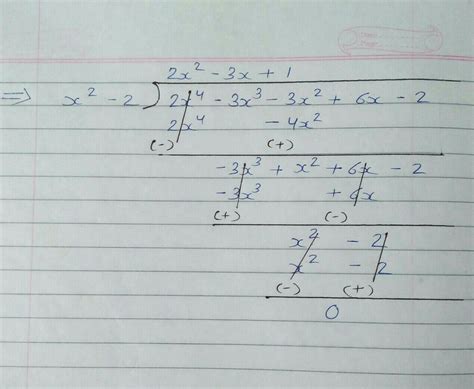 2x² - 3x + 1
⇒ x² - 2 ) 2x⁴ - 3x³ - 3x² + 6x - 2
2x⁴ - 4x²
(-) (+)
-3x³ + x² + 6x - 2
-3x³ + 6x
(+) (-)
x² - 2
x² - 2
(-) (+)
0